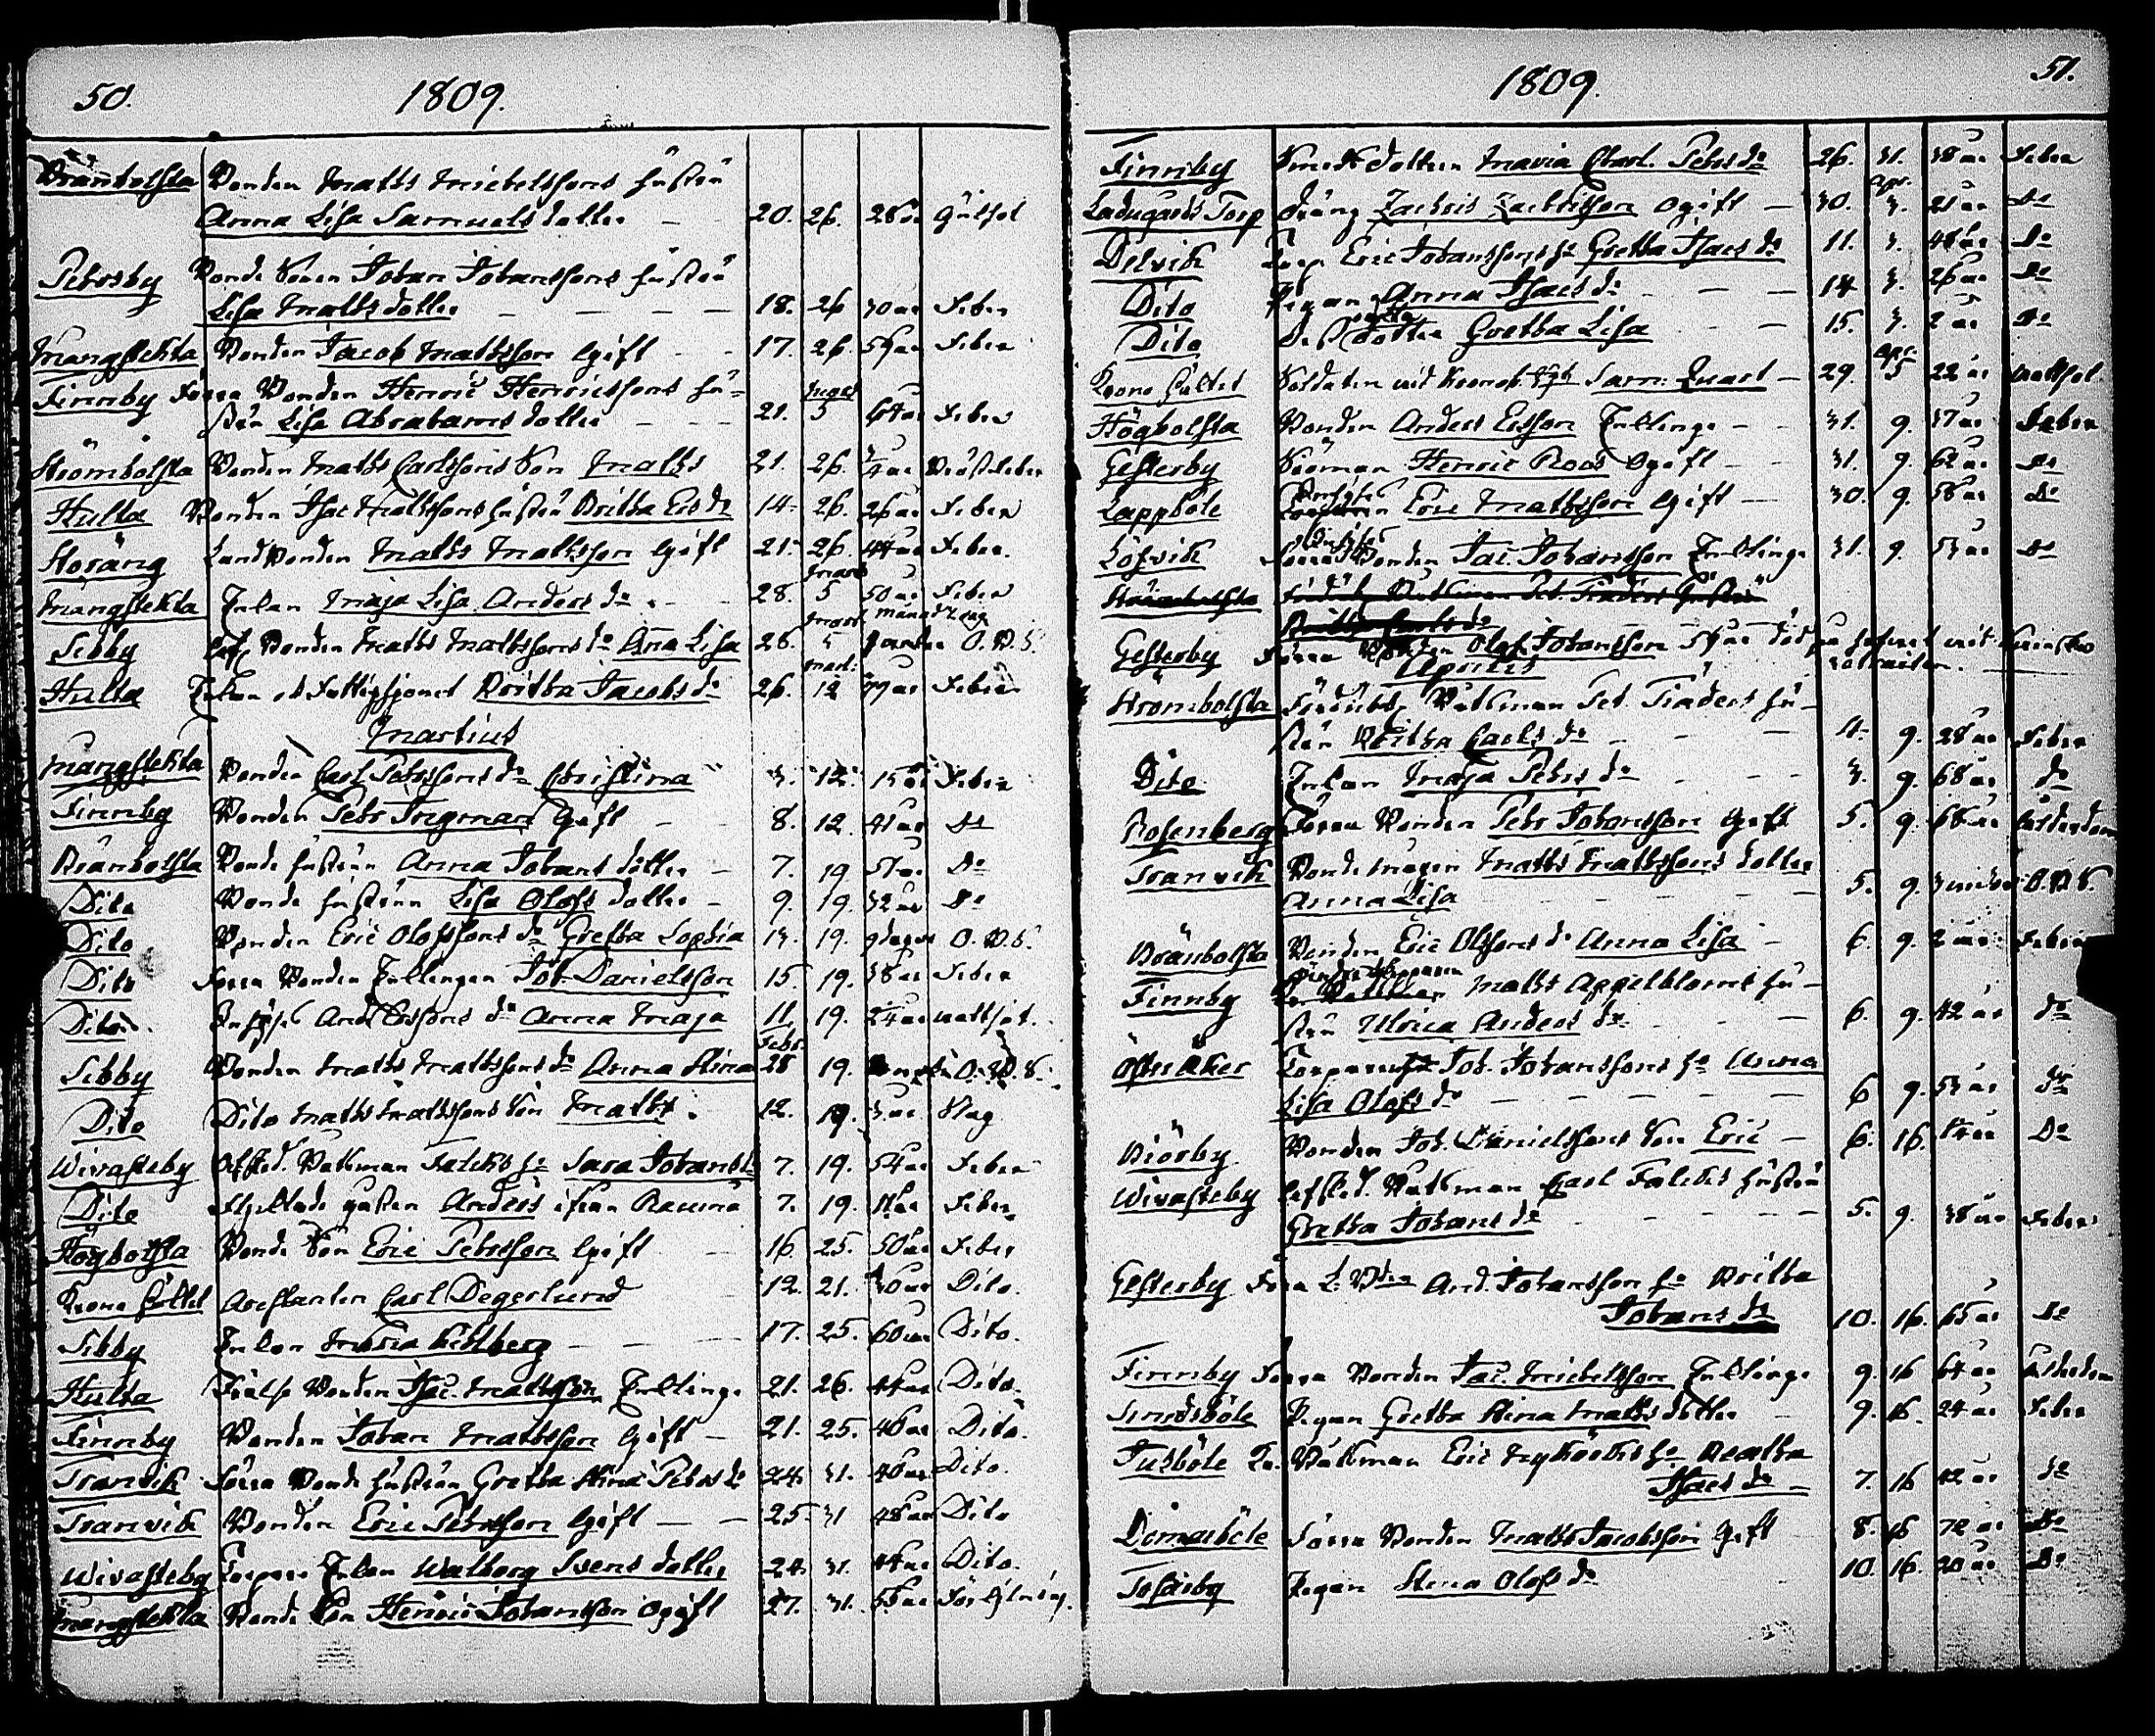 50. 1809.
Bränbolsta Bonden Matts Michelssons hustru
Anna Lisa Samuels dotter — 20. 26. 28 år Gulsot
Pehrsby Bonde Sonen Johan Johanssons hustru
Lisa Matts dotter — — — 18. 26 30 år Feber
Mangstekta Bonden Jacob Mattsson Gift — 17. 26. 59 år Feber
Finnby Förra Bonden Henric Henricssons hu-
stru Lisa Abrahams dotter — — 21. 5 64 år Feber
Strömbolsta Bonden Matts Carlssons Son Matts 21. 26. Bröstfeber
Hulta Bonden Isac Mattssons hustru Britha Ers dr 14. 26. 26 år Feber
Storäng Landbonden Matts Mattsson Gift 21. 26. 44 år Feber.
Mars
Mangstekta Enkan Maja Lisa Anders dr — 28. 5 50 år Feber
Sibby Bonden Matts Mattssons dr Anna Lisa 26. 5 O. B. S.
Hulta Enkan Britha Jacobs dr 26. 12 77 år Feber
Martius
Mangstekta Bonden Carl Pehrssons dr Christina 3. 12. 15 år Feber
Finnby Bonden Pehr Ingman Gift — 8. 12. 41 år Do
Bränbolsta Bonde hustrun Anna Johans dotter — 7. 19 51 år Do
Dito Bonde hustrun Lisa Olofs dotter — 9. 19. 32 år Do
Dito Bonden Eric Olofssons dr Gretha Sophia 13. 19. 9 dagar O. B. S.
Dito Förra Bonden Enklingen Joh. Danielsson 15. 19. 38 år Feber
Dito And. Erssons dr Anna Maja 11. 19. 24 år Wattsot.
Febr.
Sibby Bonden Matts Mattssons dr Anna Stina 28 19. O. B. S.
Dito Dito Matts Mattssons Son Matts. 12. 19. 3 år Slag
Wivasteby Afsked. Båtsman Falcks ho Sara Johans dr 7. 19. 54 år Feber
Dito gossen Anders ifrån Raumå 7. 19. Feber
Högbolsta Bonde Son Eric Pehrsson Gift — 16. 25. 50 år Feber
Krono Häktet Arrestanten Carl Degerlund 12. 21. 30 år Dito.
Sibby Enkan Maria Kihlberg — — 17. 25. 60 år Dito.
Hulta Frälse Bonden Isac. Mattsson Enkling 21. 26. 44 år Dito.
Finnby Bonden Johan Mattsson Gift — 21. 25. 46 år Dito.
Tranvik Förra Bonde hustrun Gretha Stina Pehrs dr 24. 31. 46 år Dito.
Tranvik Bonden Eric Pehrsson Gift — — 25. 31 48 år Dito
Wivasteby Torpare Enkan Walborg Svens dotter 24. 31. 44 år Dito.
Mangstekta Bonde Son Henric Johansson Ogift 27. 31. 55 år
51. 1809.
Finnby Smeds dottern Maria Charl. Pehrs dr 26. 31. 38 år Feber
Apr.
Ladugårds Torp Dräng Zachris Zachrisson Ogift — 30. 3. 21 år Do
Delvik Torp. Eric Johanssons ho Gretha Isacs dr 11. 3. 48 år Do
Dito Pigan Anna Isacs dr — — — 14 3. 26 år Do
Dito dotter Gretha Lisa — — 15. 3. 2 år Do
Apr.
Krono Häktet Soldaten vid Sam. Quart — 29. 5 22 år Wattsot.
Högbolsta Bonden Anders Ersson Enkling — — 31. 9. 37 år Feber
Gesterby Båtsman Henric Roos Ogift — — 31. 9. 62 år Do
Lappböle Eric Mattsson Gift — 30. 9. 56 år Do
Löfvik Bonden Jac. Johansson Enkling 31. 9. 53 år Do
Gesterby Förra Olof Johansson 59 år död
Aprilis
Strömbolsta Båtsman Pet. Träders hu-
stru Britha Carls dr — — — 4. 9. 28 år Feber
Dito Enkan Maja Pehrs dr — — — 3. 9. 68 år Do
Rosenberg Förra Bonden Pehr Johansson Gift 5. 9. 68 år Ålderdom
Tranvik Bonde mågen Matts Mattssons dotter
Anna Lisa — — — 5. 9. O. B. S.
Bränbolsta Bonden Eric Olssons dr Anna Lisa — 6. 9. 2 år Feber
Finnby Matts Appelbloms hu-
stru Ulrica Anders dr — — 6. 9. 42 år Do
Österåker Torparen Joh. Johanssons ho Anna
Lisa Olofs dr — — — 6 9. 53 år Do
Biörby Bonden Joh. Danielssons Son Eric — 6. 16. Do
Wivasteby Afsked. Båtsman Carl Falcks hustru
Gretha Johans dr — — — 5. 9. 38 år Feber
Gesterby Förra And. Johansson ho Britha
Johans dr 10. 16. 65 år Do
Finnby Förra Bonden Jac. Michelsson Enkling 9. 16 64 år Ålderdom
Sundsböle Pigan Gretha Stina Matts dotter — 9. 16. 24 år Feber
Tusböle Båtsman Eric ho Beatha
Isacs dr — 7. 16 42 år Do
Domarböle Förra Bonden Matts Jacobsson Gift 8. 16 72 år Do
Tosarby Pigan Stina Olofs dr 10. 16. 20 år Do